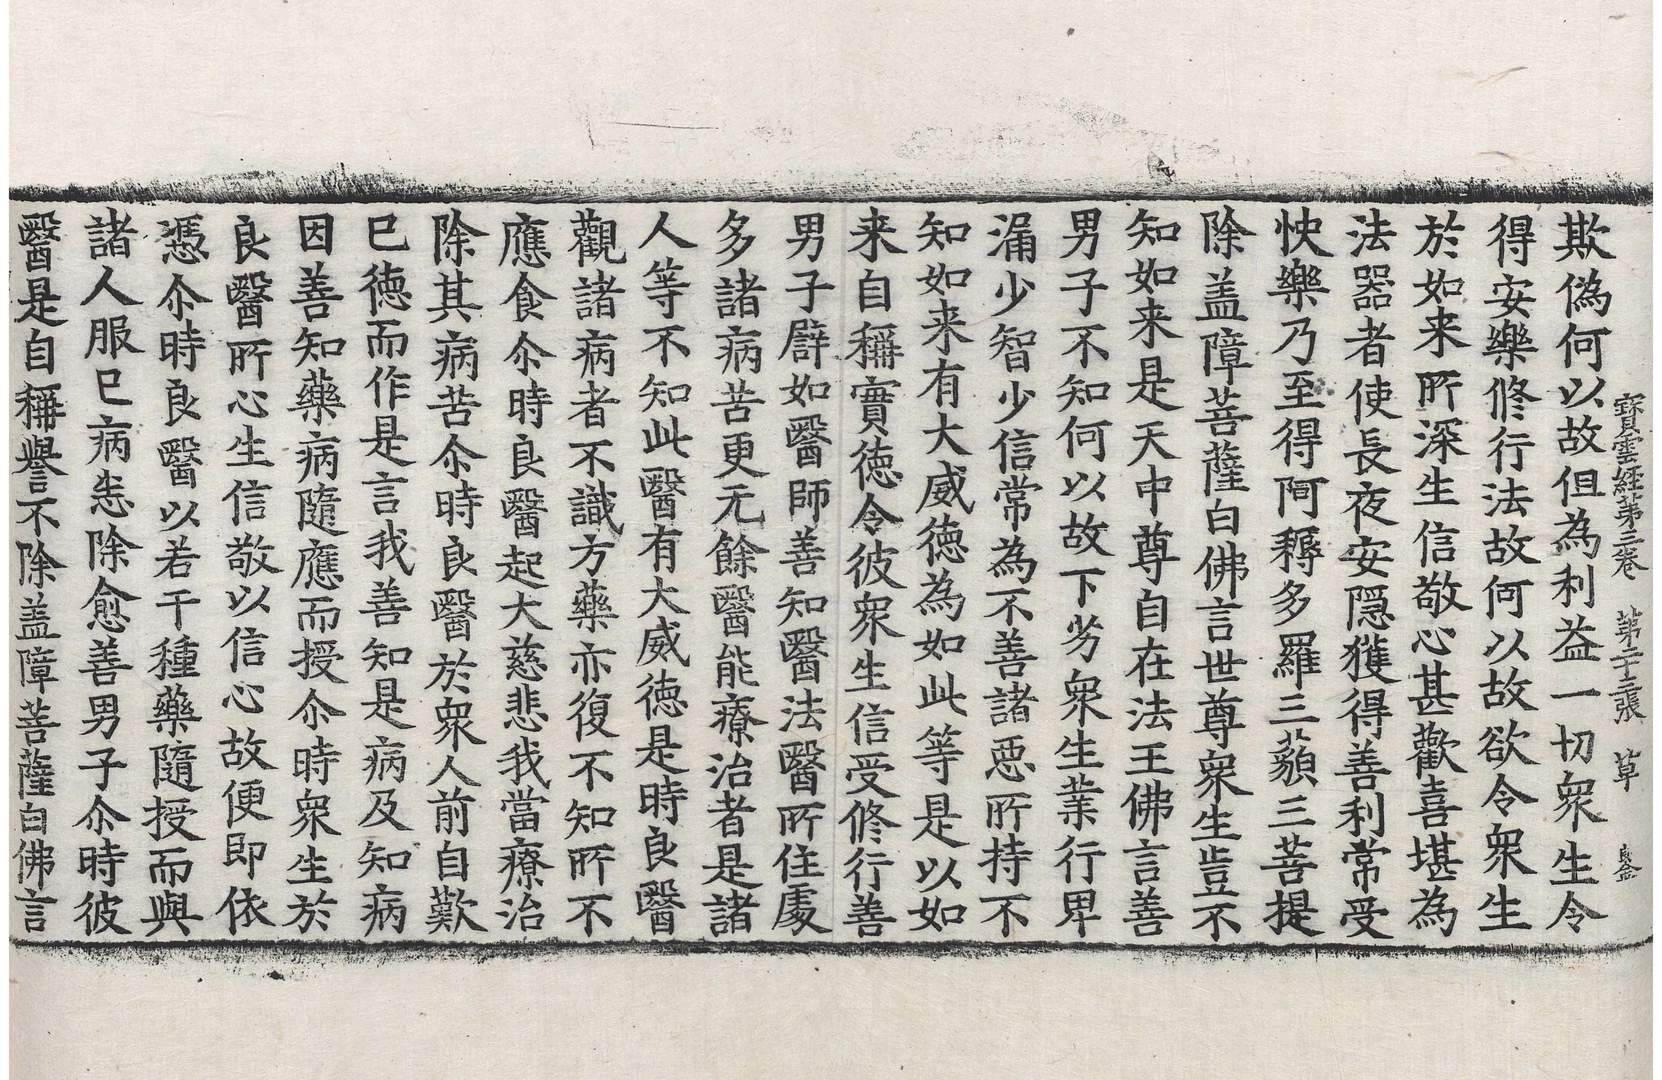 寶雲經第三卷　第二十三張　草
欺偽何以故但為利益一切衆生令
得安樂修行法故何以故欲令衆生
於如来所深生信敬心甚歡喜堪為
法器者使長夜安隱獲得善利常受
快樂乃至得阿耨多羅三藐三菩提
除盖障菩薩白佛言世尊衆生豈不
知如来是天中尊自在法王佛言善
男子不知何以故下劣衆生業行卑
漏少智少信常為不善諸惡所持不
知如来有大威徳為如此等是以如
来自稱實徳令彼衆生信受修行善
男子譬如醫師善知醫法醫所住處
多諸病苦更无餘醫能療治者是諸
人等不知此醫有大威徳是時良醫
觀諸病者不識方藥亦復不知所不
應食尒時良醫起大慈悲我當療治
除其病苦尒時良醫於衆人前自歎
已徳而作是言我善知是病及知病
因善知藥病隨應而授尒時衆生於
良醫所心生信敬以信心故便即依
憑尒時良醫以若干種藥隨授而與
諸人服已病恙除愈善男子尒時彼
醫是自稱譽不除盖障菩薩白佛言